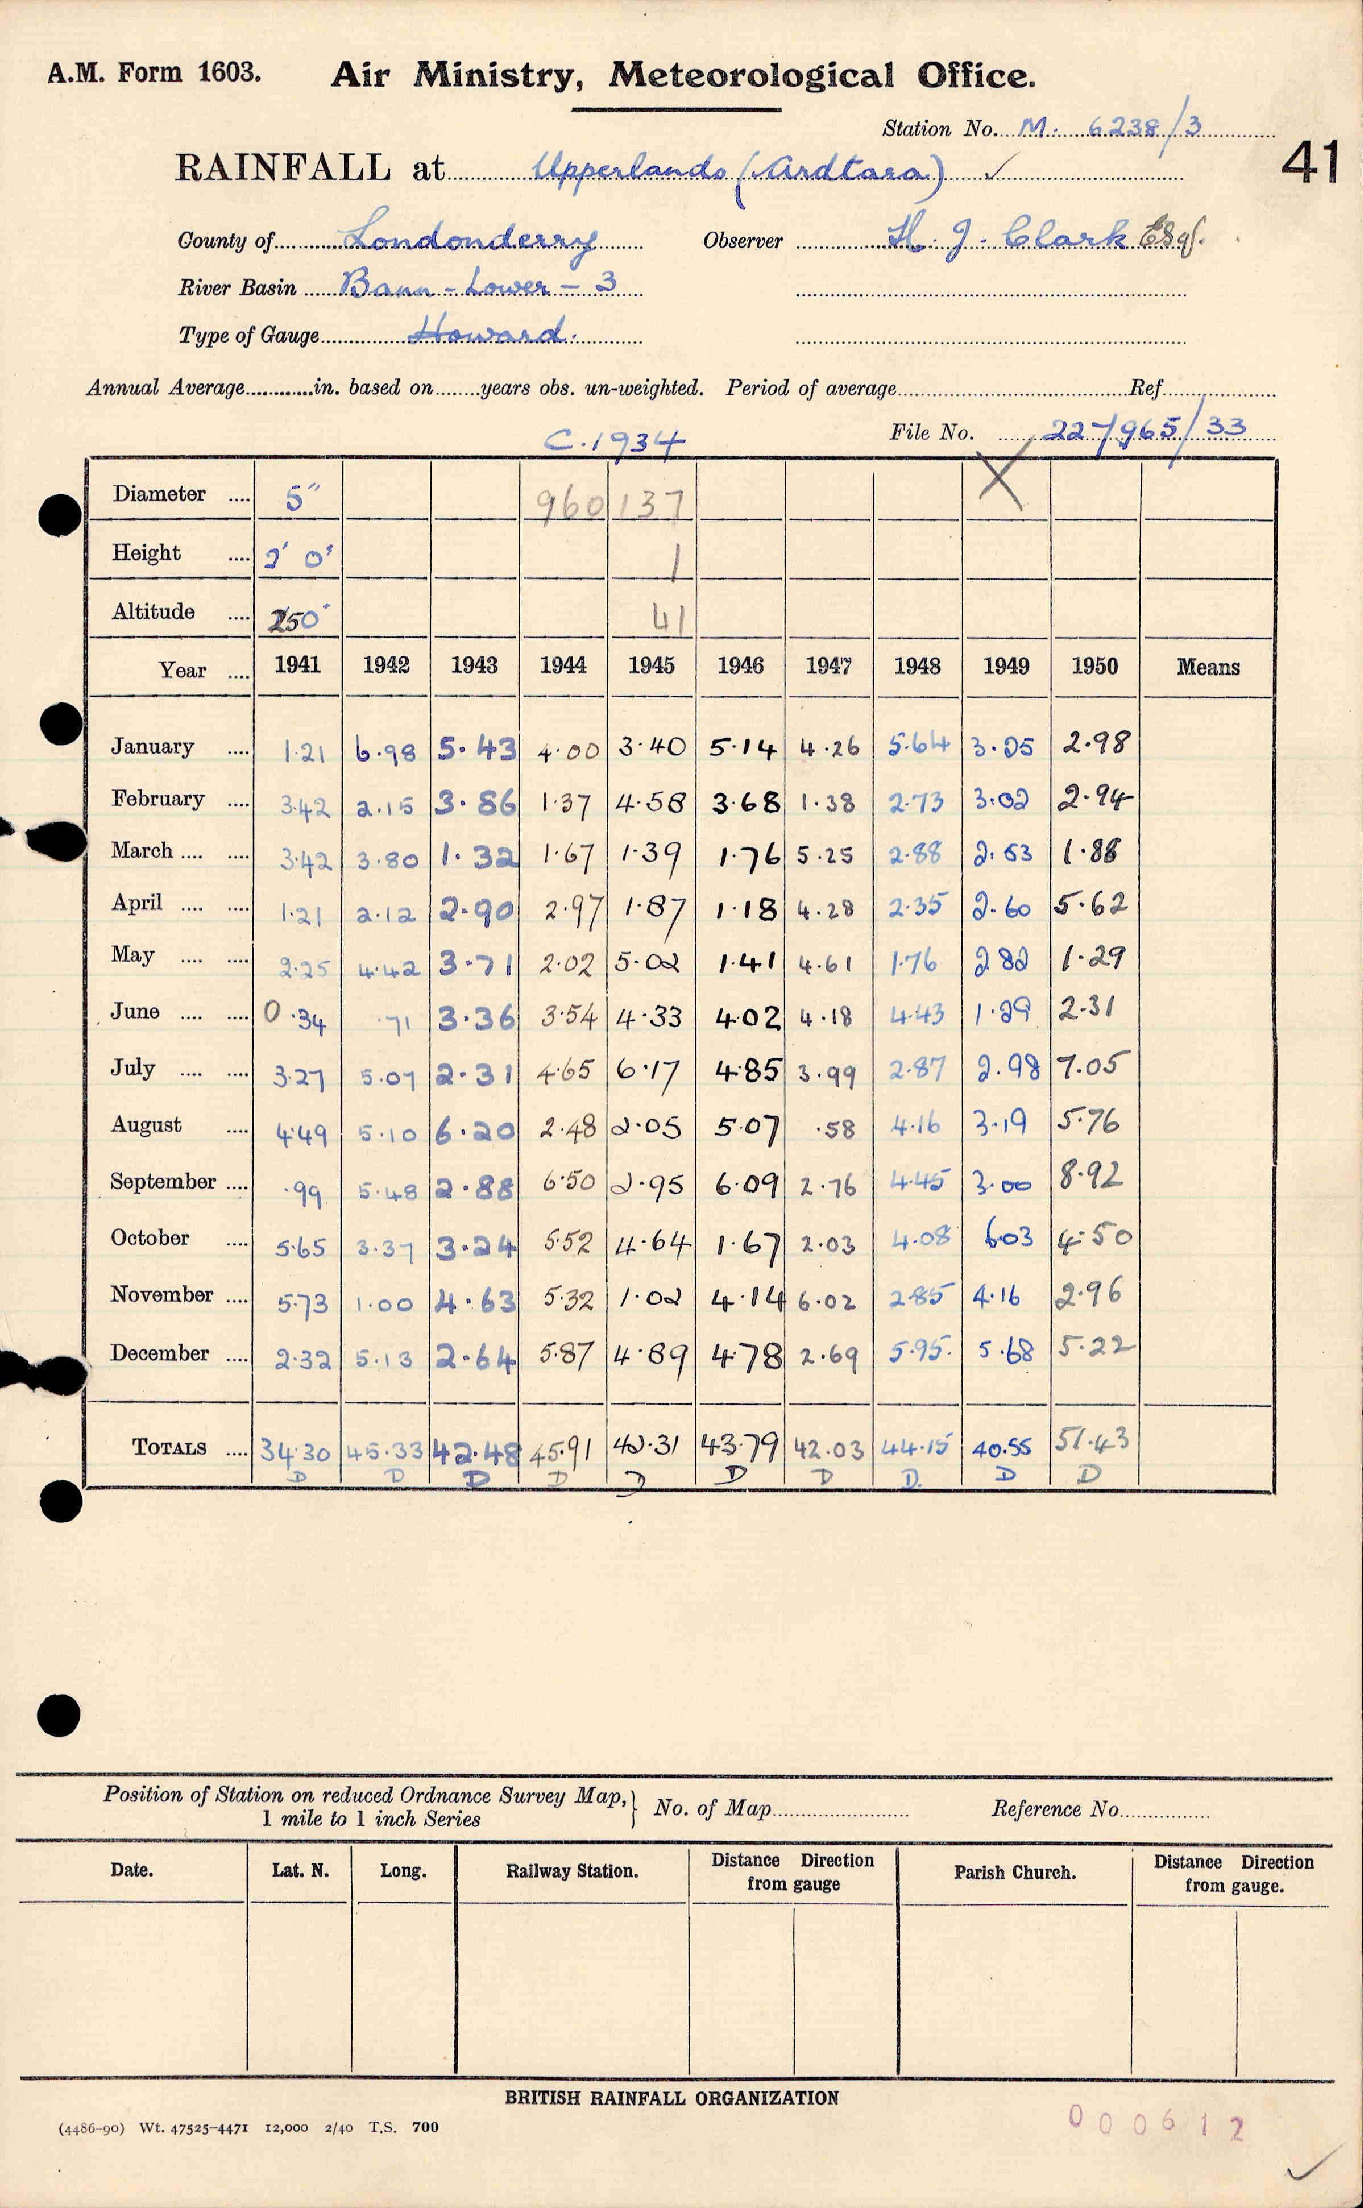 A.M. Form 1603. Air Ministry, Meteorological Office.
Station No. M. 6238/3
41
RAINFALL at Upperlands (Ardtara) ✓
County of Londonderry Observer H. J. Clark Esq.
River Basin Bann - Lower - 3
Type of Gauge Howard.
Annual Average in. based on years obs. un-weighted. Period of average Ref
C. 1934 File No. 227965/33
Diameter 5" 960 137 X
Height 2' 0" 1
Altitude 250' 41
Year 1941 1942 1943 1944 1945 1946 1947 1948 1949 1950 Means
January 1.21 6.98 5.43 4.00 3.40 5.14 4.26 5.64 3.25 2.98
February 3.42 2.15 3.86 1.37 4.58 3.68 1.38 2.73 3.02 2.94
March 3.42 3.80 1.32 1.67 1.39 1.76 5.25 2.88 2.53 1.88
April 1.21 2.12 2.90 2.97 1.87 1.18 4.28 2.35 2.60 5.62
May 2.25 4.42 3.71 2.02 5.02 1.41 4.61 1.76 2.82 1.29
June 0.34 .71 3.36 3.54 4.33 4.02 4.18 4.43 1.29 2.31
July 3.27 5.07 2.31 4.65 6.17 4.85 3.99 2.87 2.98 7.05
August 4.49 5.10 6.20 2.48 2.05 5.07 .58 4.16 3.19 5.76
September .99 5.48 2.88 6.50 2.95 6.09 2.76 4.45 3.00 8.92
October 5.65 3.37 3.24 5.52 4.64 1.67 2.03 4.08 6.03 4.50
November 5.73 1.00 4.63 5.32 1.02 4.14 6.02 2.85 4.16 2.96
December 2.32 5.13 2.64 5.87 4.89 4.78 2.69 5.95 5.68 5.22
TOTALS 34.30 45.33 42.48 45.91 42.31 43.79 42.03 44.15 40.55 51.43
D D D D D D D D. D D
Position of Station on reduced Ordnance Survey Map, 1 mile to 1 inch Series } No. of Map Reference No.
Date. Lat. N. Long. Railway Station. Distance Direction from gauge Parish Church. Distance Direction from gauge.
BRITISH RAINFALL ORGANIZATION
(4486-90) Wt. 47525-4471 12,000 2/40 T.S. 700
000612
✓